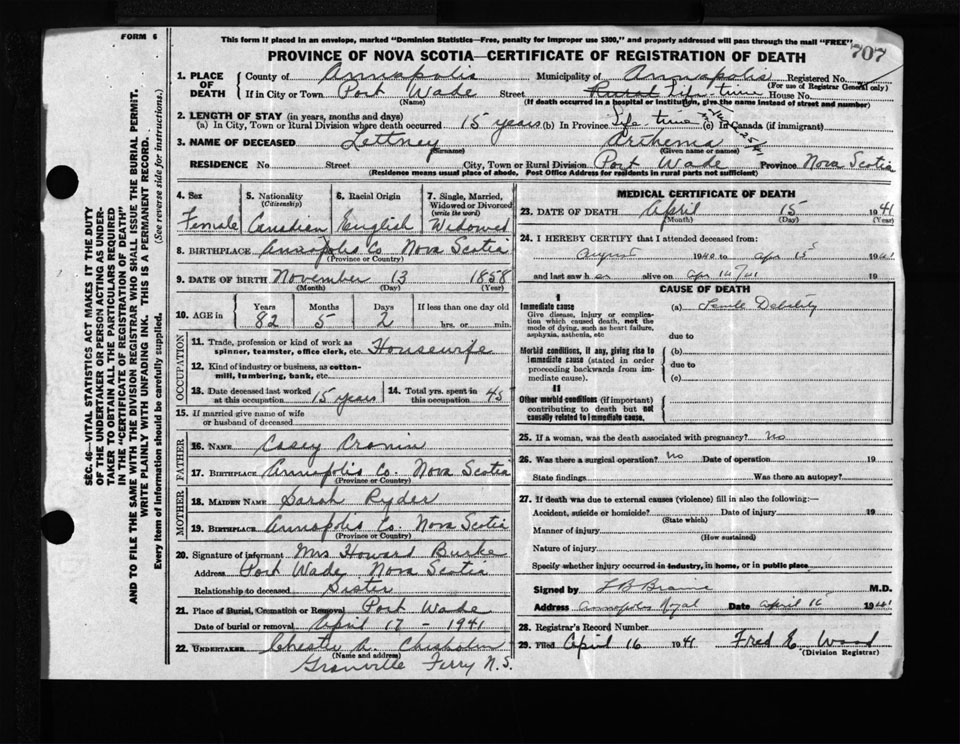 FORM 6
This form if placed in an envelope, marked "Dominion Statistics—Free, penalty for improper use $300," and properly addressed will pass through the mail "FREE"
PROVINCE OF NOVA SCOTIA—CERTIFICATE OF REGISTRATION OF DEATH
707
1. PLACE OF DEATH
County of Annapolis Municipality of Annapolis Registered No.
(For use of Registrar General only)
If in City or Town Port Wade Street Rural Life time House No.
(Name) (If death occurred in a hospital or institution, give the name instead of street and number)
2. LENGTH OF STAY (in years, months and days)
(a) In City, Town or Rural Division where death occurred 15 years (b) In Province Life time (c) In Canada (if immigrant)
3. NAME OF DECEASED Lettney Arthema
(Surname) (Given name or names)
RESIDENCE No. Street City, Town or Rural Division Port Wade Province Nova Scotia
(Residence means usual place of abode, Post Office Address for residents in rural parts not sufficient)
4. Sex Female
5. Nationality (Citizenship) Canadian
6. Racial Origin English
7. Single, Married, Widowed or Divorced (write the word) Widowed
8. BIRTHPLACE Annapolis Co Nova Scotia
(Province or Country)
9. DATE OF BIRTH November 13 1858
(Month) (Day) (Year)
10. AGE in Years 82 Months 5 Days 2 If less than one day old hrs. or min.
OCCUPATION
11. Trade, profession or kind of work as spinner, teamster, office clerk, etc. Housewife
12. Kind of industry or business, as cotton-mill, lumbering, bank, etc.
13. Date deceased last worked at this occupation 15 years
14. Total yrs. spent in this occupation 45
15. If married give name of wife or husband of deceased
FATHER
16. NAME Casey Cronin
17. BIRTHPLACE Annapolis Co. Nova Scotia
(Province or Country)
MOTHER
18. MAIDEN NAME Sarah Ryder
19. BIRTHPLACE Annapolis Co. Nova Scotia
(Province or Country)
20. Signature of informant Mrs Howard Burke
Address Port Wade Nova Scotia
Relationship to deceased Sister
21. Place of Burial, Cremation or Removal Port Wade
Date of burial or removal April 17 - 1941
22. UNDERTAKER Chester A. Chisholm
(Name and address)
Granville Ferry N.S.
MEDICAL CERTIFICATE OF DEATH
23. DATE OF DEATH April 15 1941
(Month) (Day) (Year)
24. I HEREBY CERTIFY that I attended deceased from:
August 1940 to Apr 15 1941
and last saw her alive on Apr 14/41 19
CAUSE OF DEATH
I
Immediate cause (a) Senile Debility
Give disease, injury or complication which caused death, not the mode of dying, such as heart failure, asphyxia, asthenia, etc
due to
Morbid conditions, if any, giving rise to immediate cause (stated in order proceeding backwards from immediate cause).
(b)
due to
(c)
II
Other morbid conditions (if important) contributing to death but not causally related to immediate cause.
25. If a woman, was the death associated with pregnancy? No
26. Was there a surgical operation? No Date of operation 19
State findings Was there an autopsy?
27. If death was due to external causes (violence) fill in also the following:—
Accident, suicide or homicide? Date of injury 19
(State which)
Manner of injury
(How sustained)
Nature of injury
Specify whether injury occurred in industry, in home, or in public place
Signed by M.D.
Address Annapolis Royal Date April 16 1941
28. Registrar's Record Number
29. Filed April 16 1941 Fred E. Wood
(Division Registrar)
SEC. 46—VITAL STATISTICS ACT MAKES IT THE DUTY
OF THE UNDERTAKER OR PERSON ACTING AS UNDER-
TAKER TO OBTAIN ALL THE PARTICULARS REQUIRED
IN THE "CERTIFICATE OF REGISTRATION OF DEATH"
AND TO FILE THE SAME WITH THE DIVISION REGISTRAR WHO SHALL ISSUE THE BURIAL PERMIT.
WRITE PLAINLY WITH UNFADING INK. THIS IS A PERMANENT RECORD.
Every item of information should be carefully supplied. (See reverse side for instructions.)